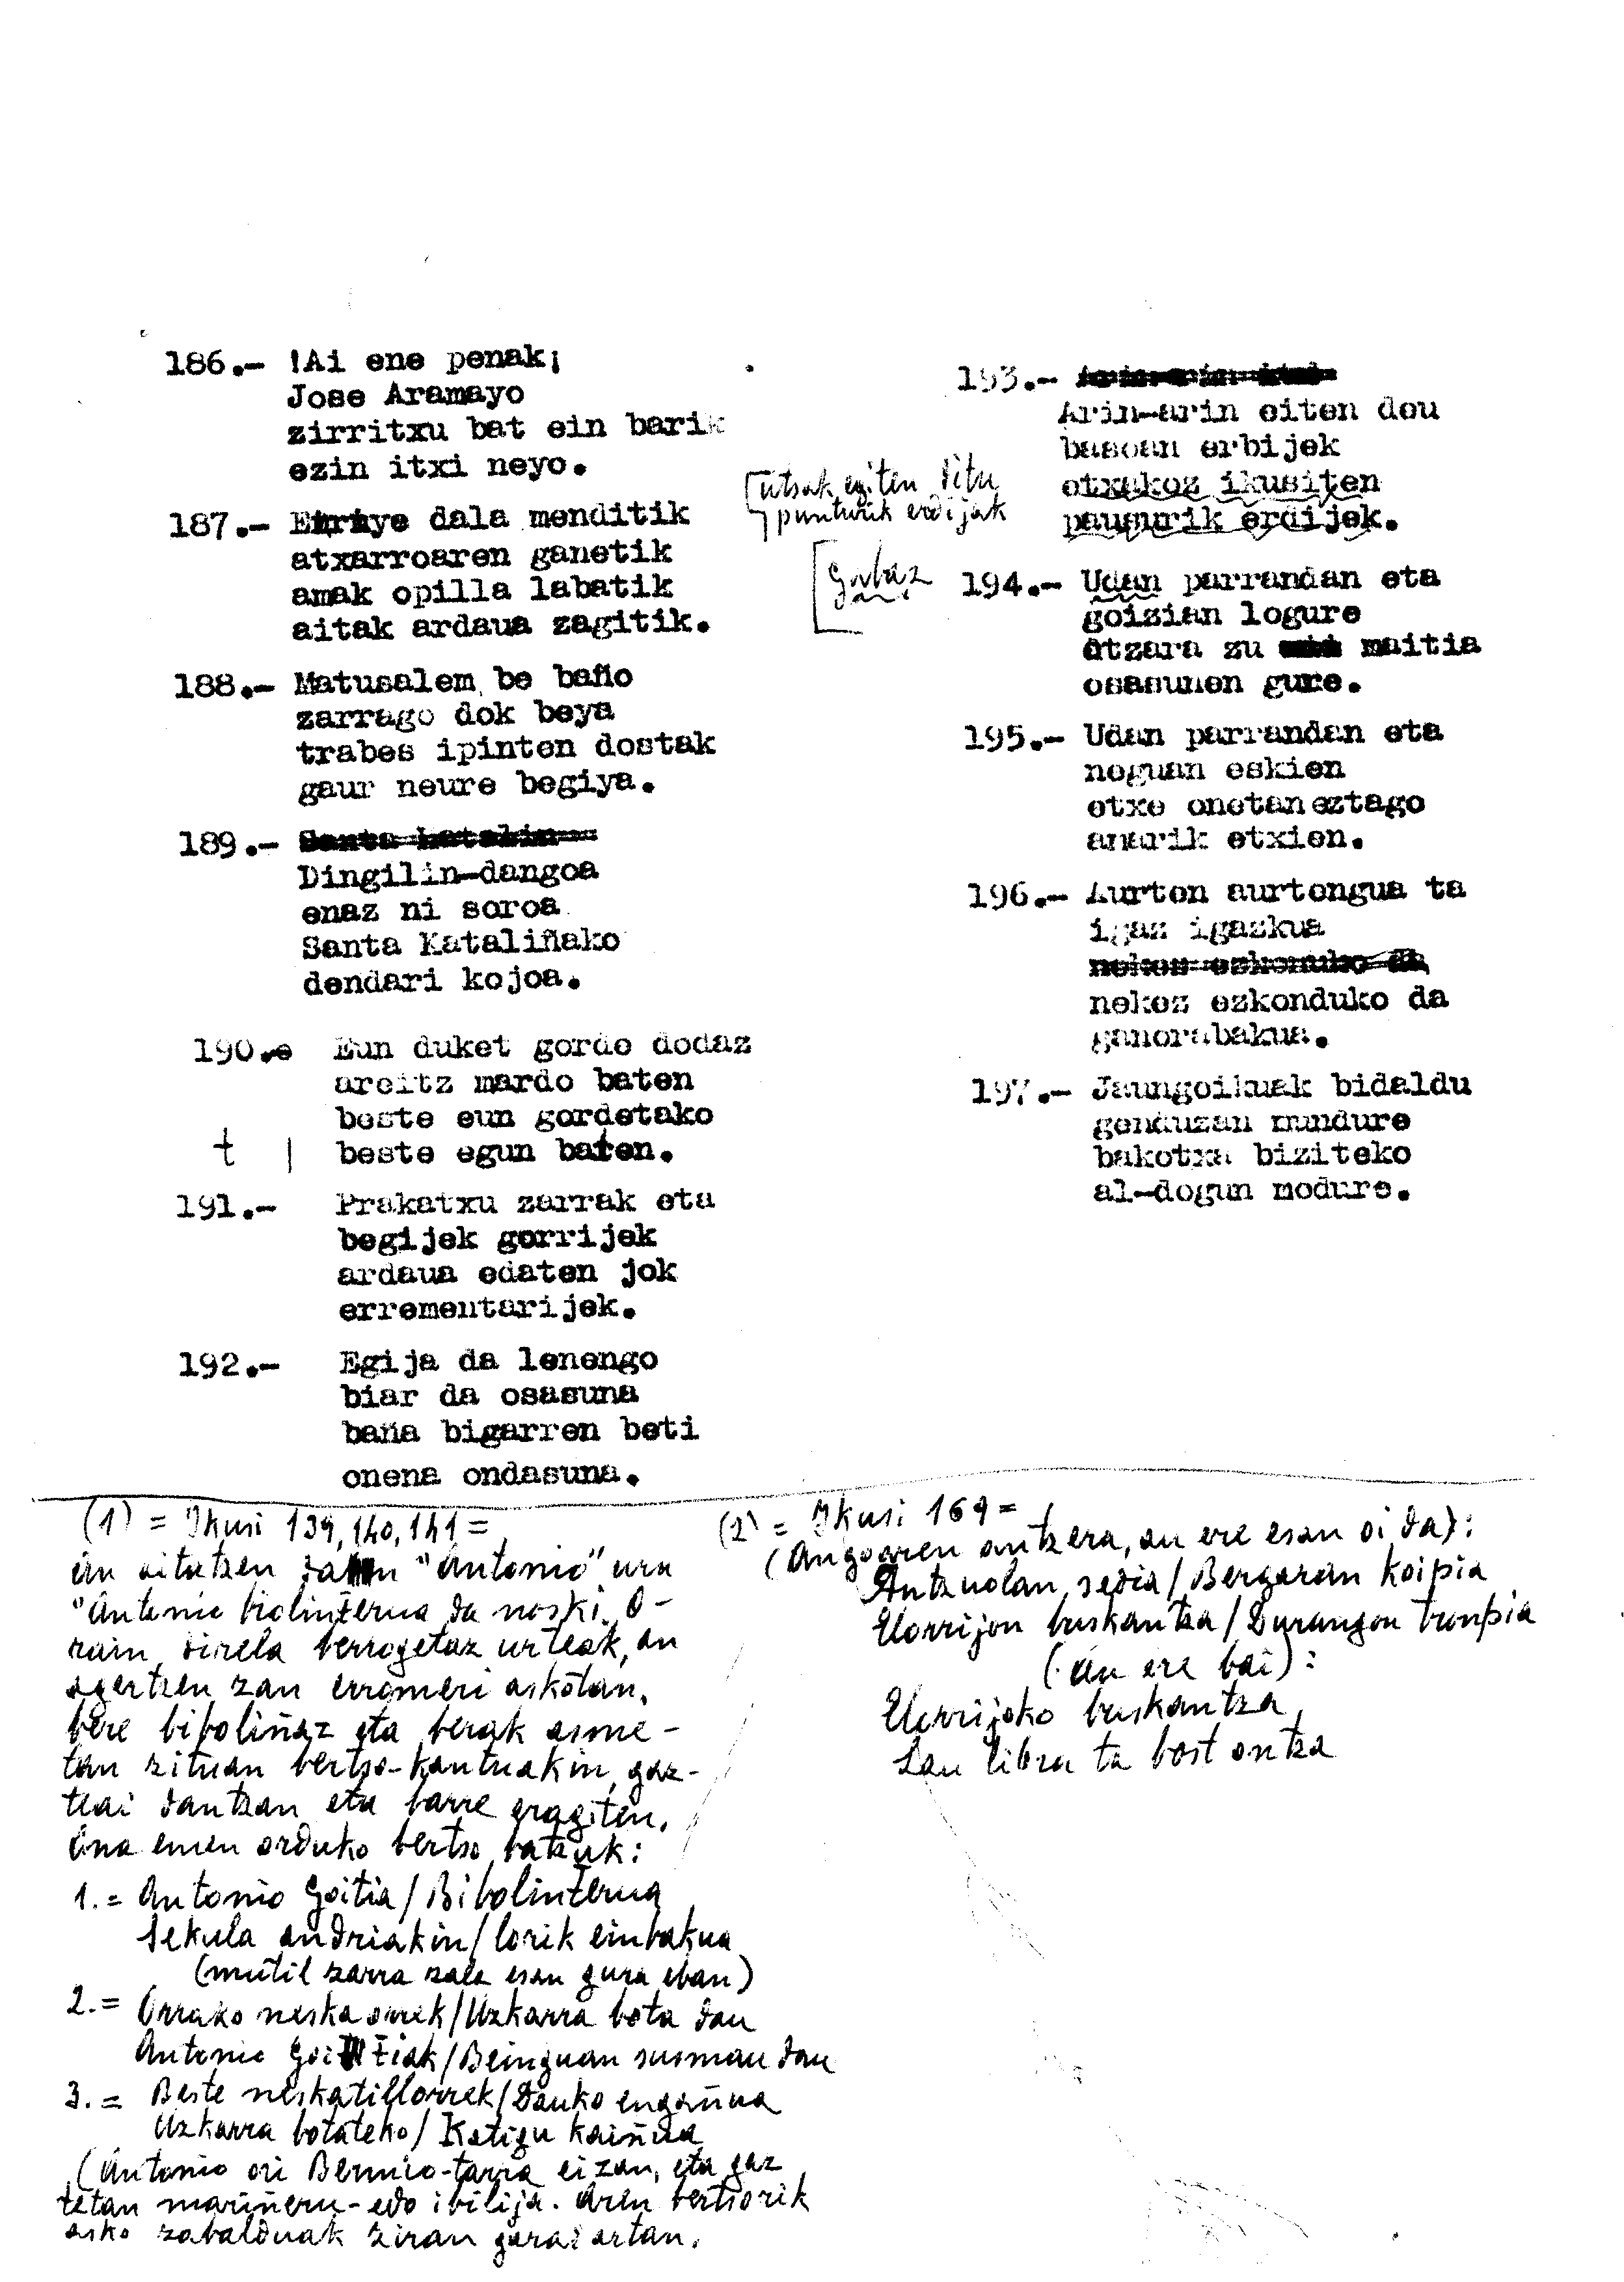 186.- !Ai ene penak¡
Jose Aramayo
zirritxu bat ein barik
ezin itxi neyo.
187.- Euriye dala menditik
atxarroaren ganetik
amak opilla labatik
aitak ardaua zagitik.
188.- Matusalem be baño
zarrago dok beya
trabes ipinten dostak
gaur neure begiya.
189.-
Dingilin-dangoa
enaz ni soroa
Santa Kataliñako
dendari kojoa.
190.- Eun duket gordo dodaz
areitz mardo baten
beste eun gordetako
t | beste egun baten.
191.- Prakatxu zarrak eta
begijek gorrijek
ardaua edaten jok
errementarijek.
192.- Egija da lenengo
biar da osasuna
baña bigarren beti
onena ondasuna.
193.-
Arin-arin eiten dou
basoan erbijek
etxakoz ikusiten
pausurik erdijek.
utsak egiten ditu
punturik erdijak
194.- Udan parrandan eta
gabaz
goizian logure
etzara zu maitia
osasunen gure.
195.- Udan parrandan eta
neguan eskien
etxe onetan eztago
anarik etxien.
196.- Aurten aurtengua ta
igaz igazkua
nekez ezkonduko da
ganorabakua.
197.- Jaungoikuak bidaldu
genduzan mundure
bakotxa biziteko
al-dogun modure.
(1) = Ikusi 139, 140, 141 =
an aitatzen dan "Antonio" ura
"Antonio biolinterua da noski. O-
rain, direla berrogetaz urteak, an
agertzen zan erromeri askotan,
bere biboliñaz eta berak asme-
tan zituan bertso-kantuakin, gaz-
teai dantzan eta barre eragiten.
Ona emen orduko bertso batzuk:
1. = Antonio Goitia / Bibolinterua
Sekula andriakin / lorik einbakua
(mutil zarra zala esan gura eban)
2. = Orrako neska orrek / Uzkarra bota dau
Antonio Goitiak / Beinguan susmau dau
3. = Beste neskatillorrek / Dauko engañua
Uzkarra botateko / Katigu kaiñua
(Antonio ori Bermio-tarra ei zan, eta gaz
tetan mariñeru-edo ibilija. Aren bertsorik
asko zabalduak ziran garai artan.
(2) = Ikusi 169 =
(Angoaren antzera, au ere esan oi da):
Antzuolan sedia / Bergaran koipia
Elorrijon buskantza / Durangon tronpia
(au ere bai):
Elorrijoko buskantza
Lau libra ta bost ontza